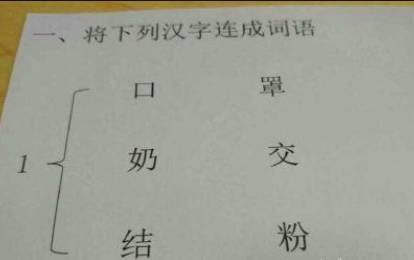 一、将下列汉字连成词语
口 罩
1 奶 交
结 粉